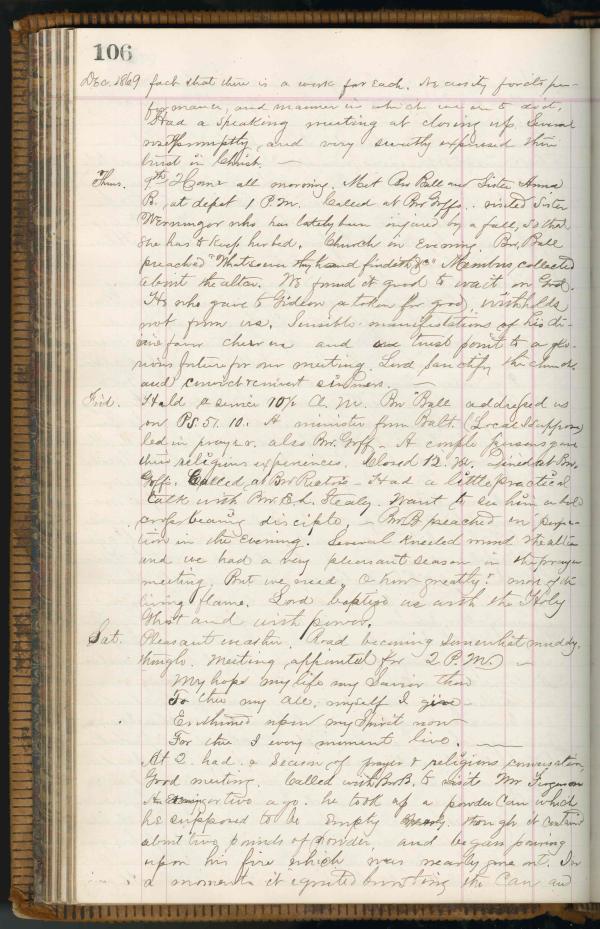 106
Dec. 1869 fact that there is a work for each. Necessity for its per-
formance, and manner in which we are to do it.
Had a speaking meeting at closing up. Several
rose promptly, and very sweetly expressed their
trust in Christ. —
Thurs. 9th Home all morning. Met Bro Ball and Sister Anna
B. at depot 1 P.M. Called at Bro Goffs. visited Sister
Werninger who has lately been injured by a fall, so that
she has to keep her bed. Church in Evening. Bro. Ball
preached "Whatsoever thy hand findeth &c" Members collected
about the altar. We found it good to wait on God.
He who gave to Gideon a token for good, withholds
not from us. Sensible manifestations of his di-
vine favor cheer us and trust point to a glo-
rious future for our meeting. Lord sanctify the church
and convict & convert sinners. —
Frid. Held a service 10½ A.M. Bro Ball addressed us
on Ps. 51. 10. A minister from Balt. (Local I suppose)
led in prayer. also Bro. Goff — A couple persons gave
their religious experiences. Closed 12. M. Dined at Bro.
Goffs. Called at Bro — Had a little practical
talk with Bro. Ed. Want to see him a bold
cross bearing disciple. — Bro. B preached on
in the Evening. Several kneeled round the altar
and we had a very pleasant season in the prayer
meeting. But we need, O how greatly! more of the
living flame. Lord baptize us with the Holy
Ghost and with power.
Sat. Pleasant weather. Road becoming somewhat muddy,
though. Meeting appointed for 2 P.M. —
My hope my life my Savior thou
To thee my all, myself I give
Enshrined upon my Spirit now
For thee I every moment live. —
At 2 had a season of prayer & religious conversation,
Good meeting. Called with Bro B. to visit Mr Ferguson
or two ago. he took up a powder can which
he supposed to be empty though it contained
about two pounds of powder, and began pouring
upon his fire which was nearly gone out. In
a moment it ignited bursting the can and